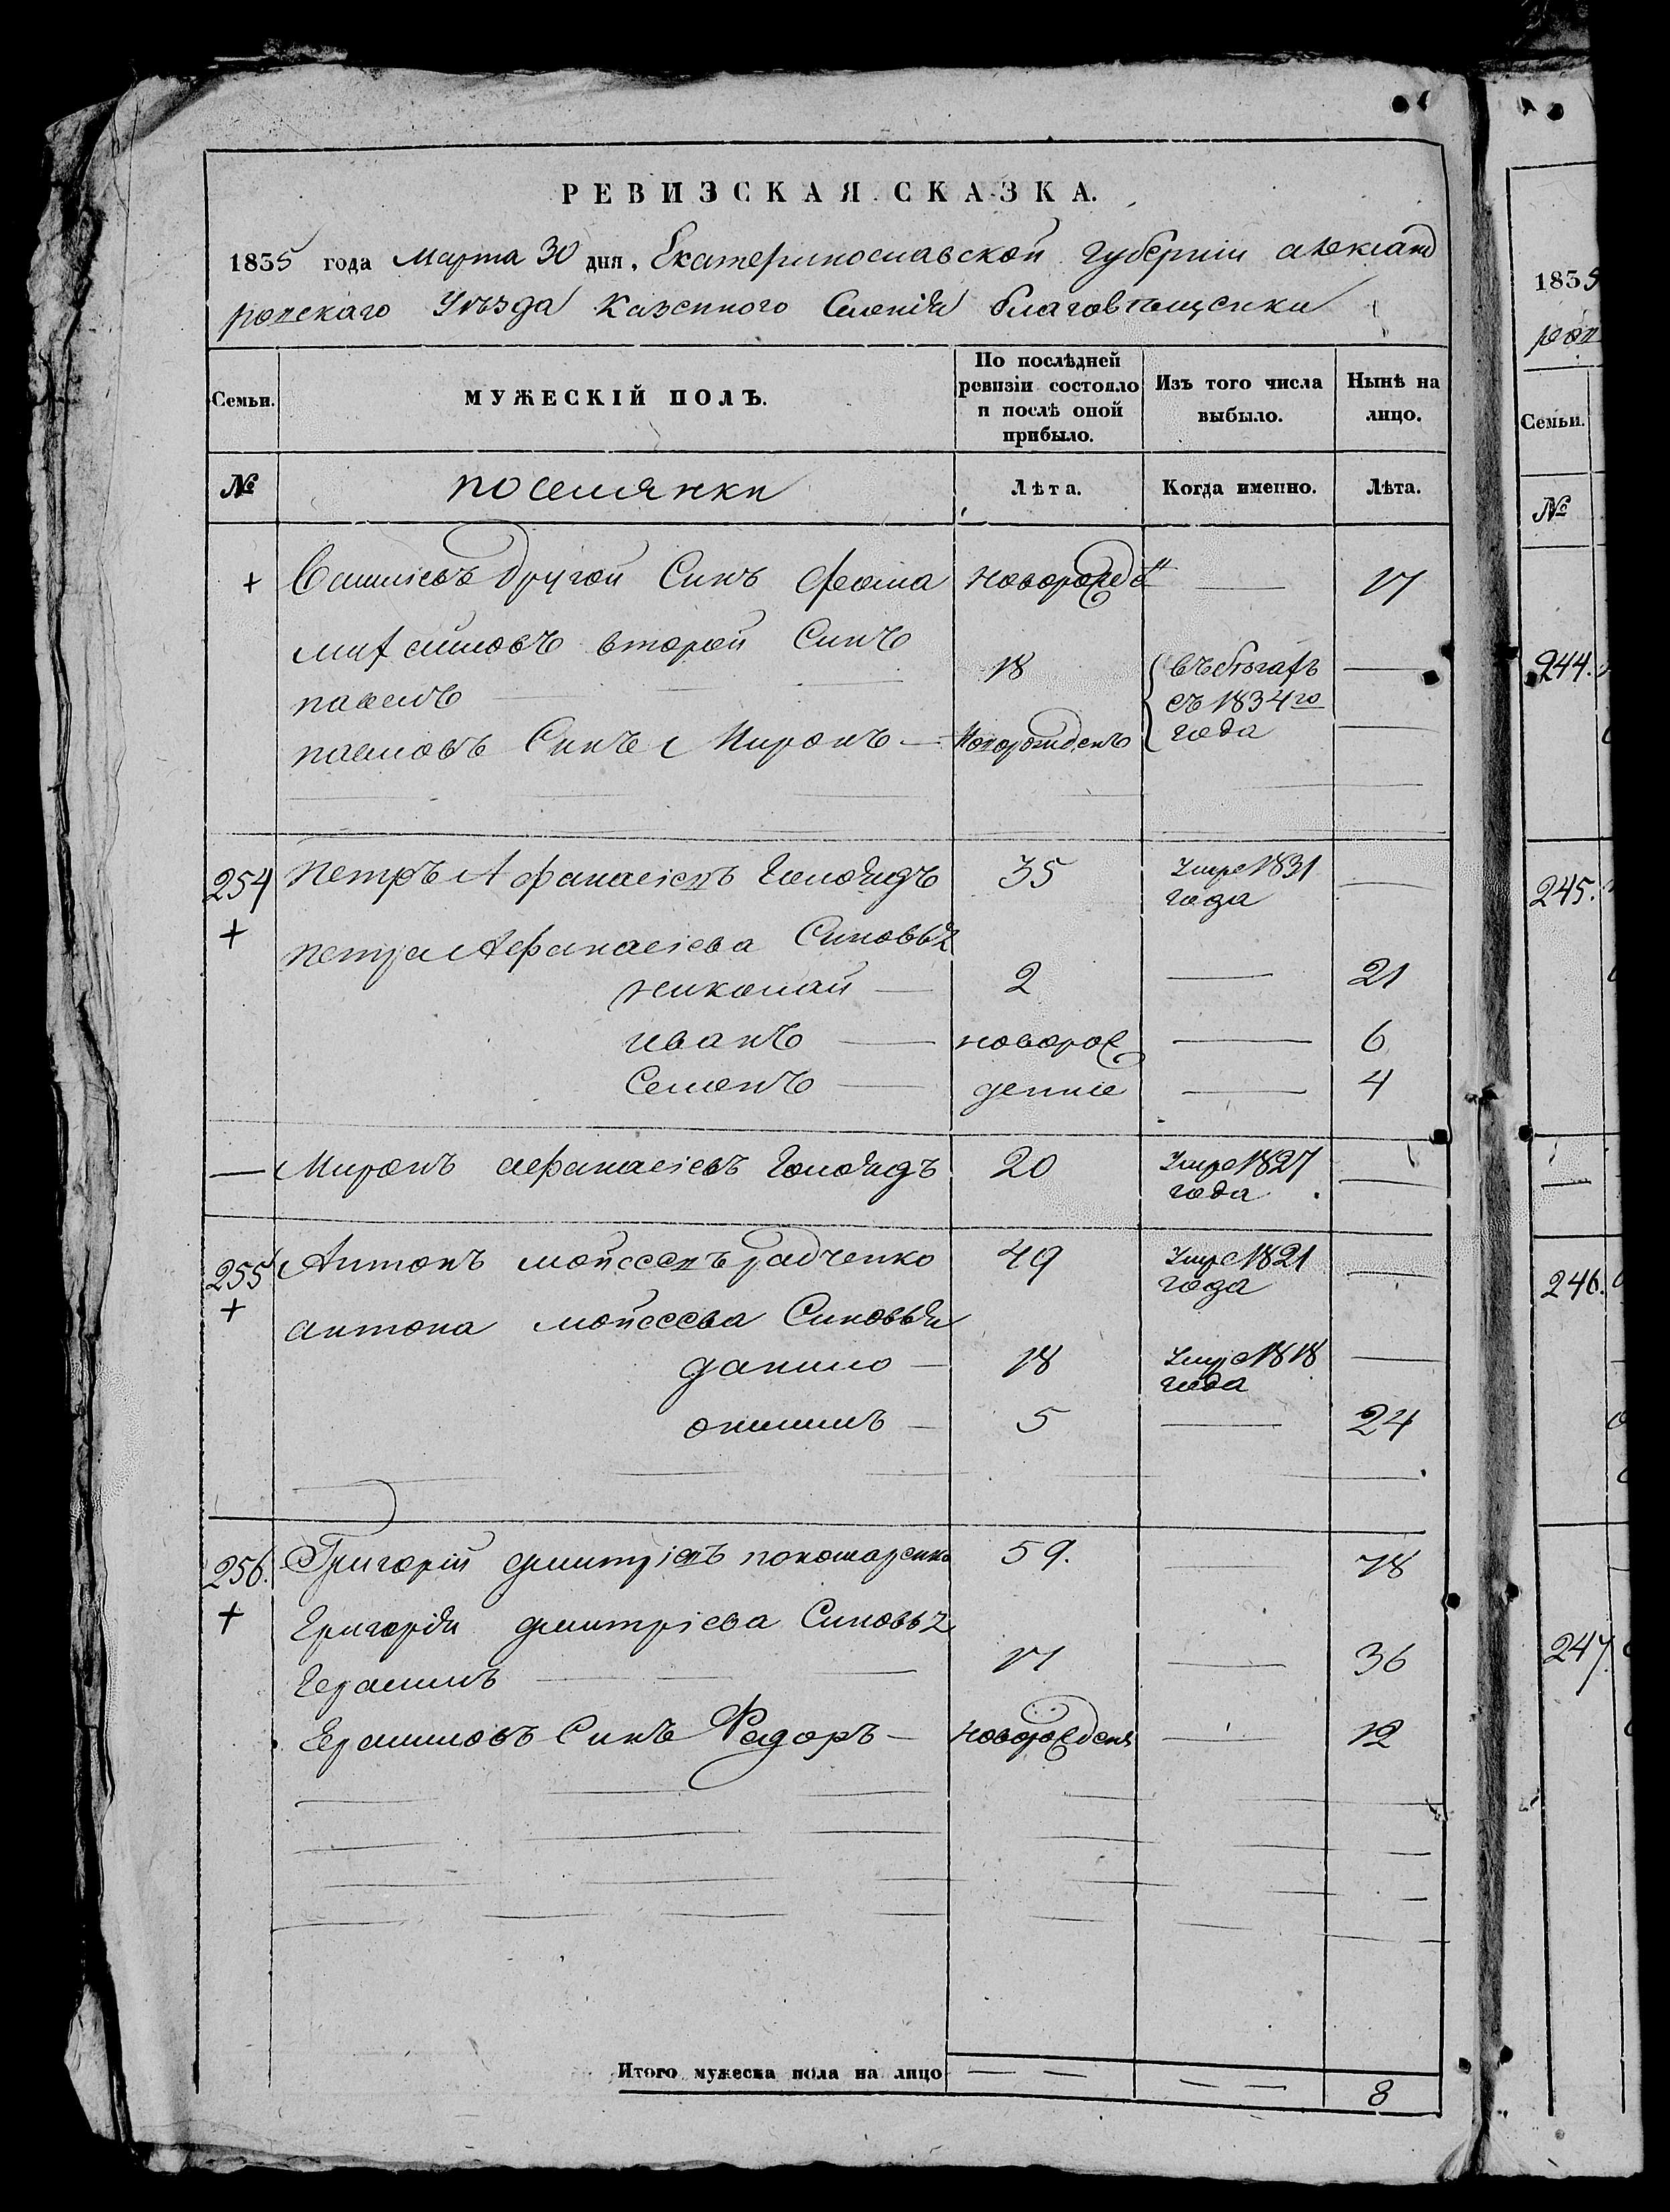 РЕВИЗСКАЯ СКАЗКА.
1835 года Марта 30 дня, Екатеринославской губерніи александ
ровскаго Уѣзда Казенного Селенія благовѣщенки
Семьи.
МУЖЕСКІЙ ПОЛЪ.
По послѣдней
ревизіи состояло
и послѣ оной
прибыло.
Изъ того числа
выбыло.
Нынѣ на
лицо.
№
поселянки
Лѣта.
Когда именно.
Лѣта.
+ другой Синъ фома новорожд 17
михайловъ второй Синъ
павелъ 18 въ бѣгахъ
съ 1834го
года
павловъ Синъ Миронъ — Новорожденъ
254 Петръ Афанасіевъ 35 Умре 1831
года
+ петра Афанасіева Синовья
николай — 2 — 21
иванъ — новорож — 6
Семенъ — денніе — 4
— Миронъ афанасіевъ 20 Умре 1827
года
255 Антонъ мойсеевъ радченко 49 Умре 1821
года
+ антона мойсеева Синовья
данило — 18 Умре 1818
года
онисимъ — 5 — 24
256. Григорій дмитріевъ пономаренко 59. — 78
+ Григорія дмитріева Синовья
Герасимъ — 17 — 36
Герасимовъ Синъ Федоръ — новорожденъ — 12
Итого мужеска пола на лицо — — — — 8
1835
ров
Семьи.
№
244.
245.
—
246.
247.